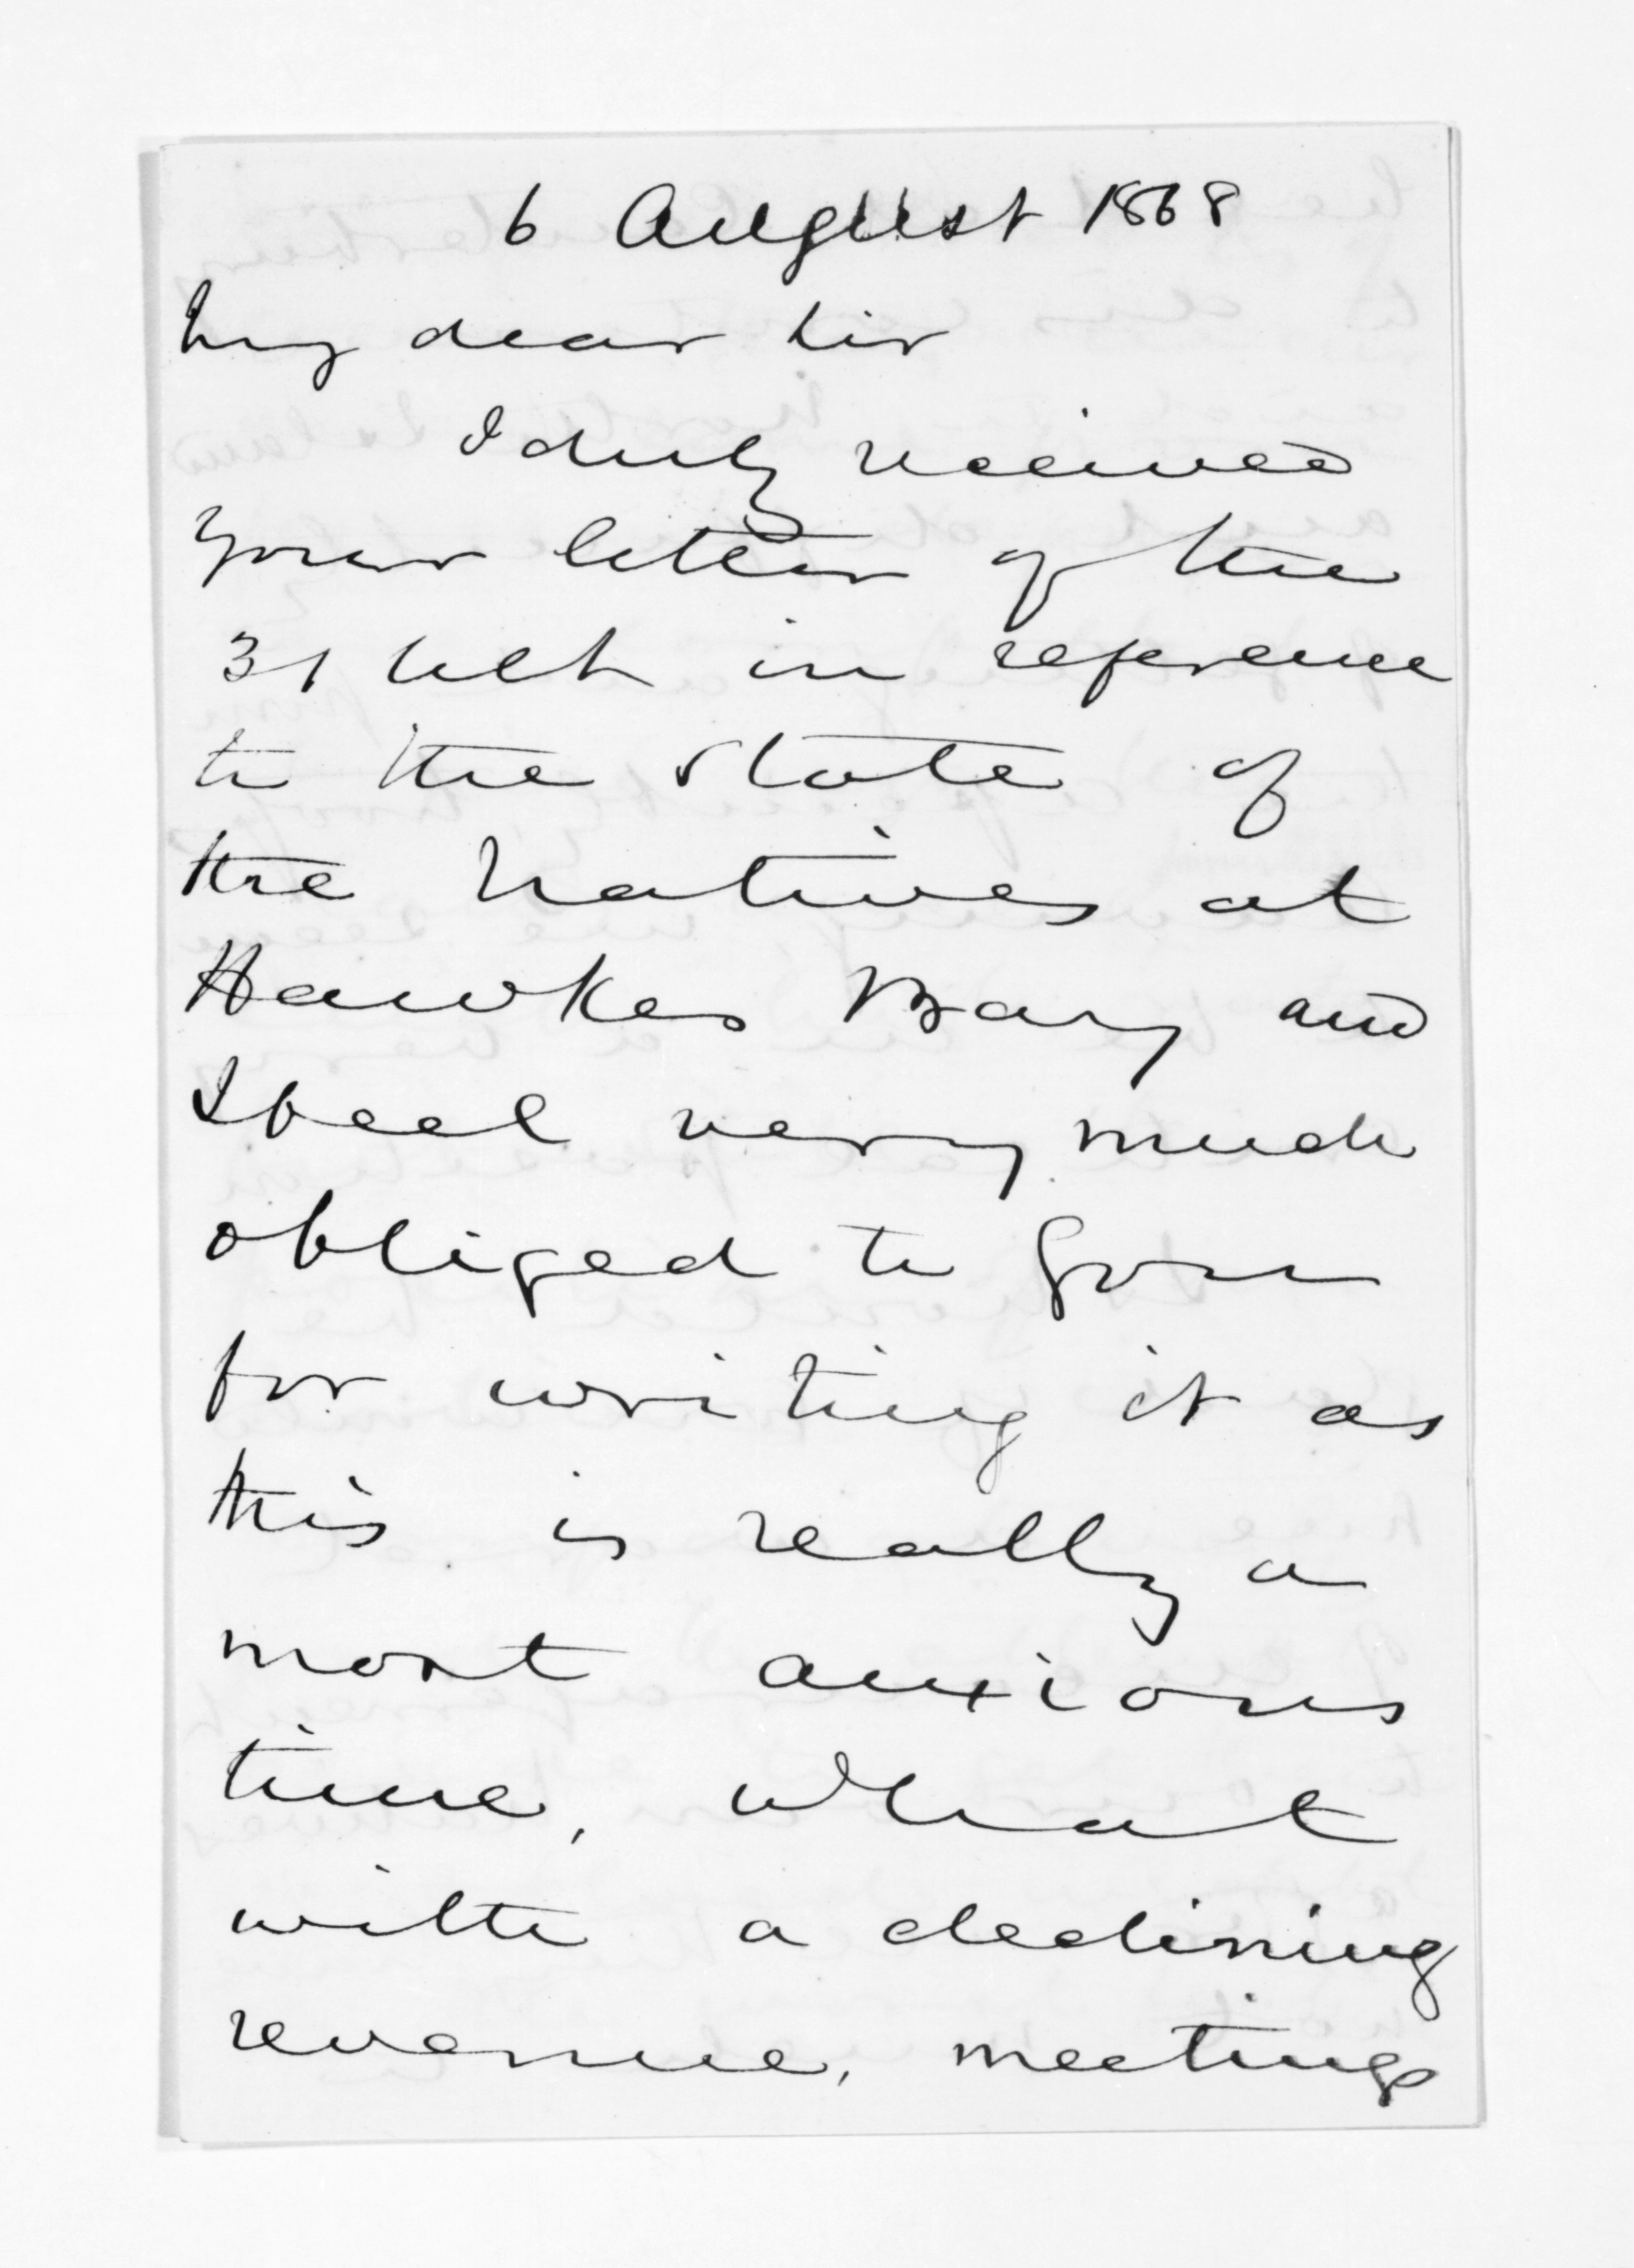 6 August 1868
My dear Sir
I duly received
your letter of the
31 Ult in reference
to the state of
the Natives at
Hawkes Bay and
I feel very much
obliged to you
for writing it as
this is really a
most anxious
time, what
with a declining
revenue, meetings